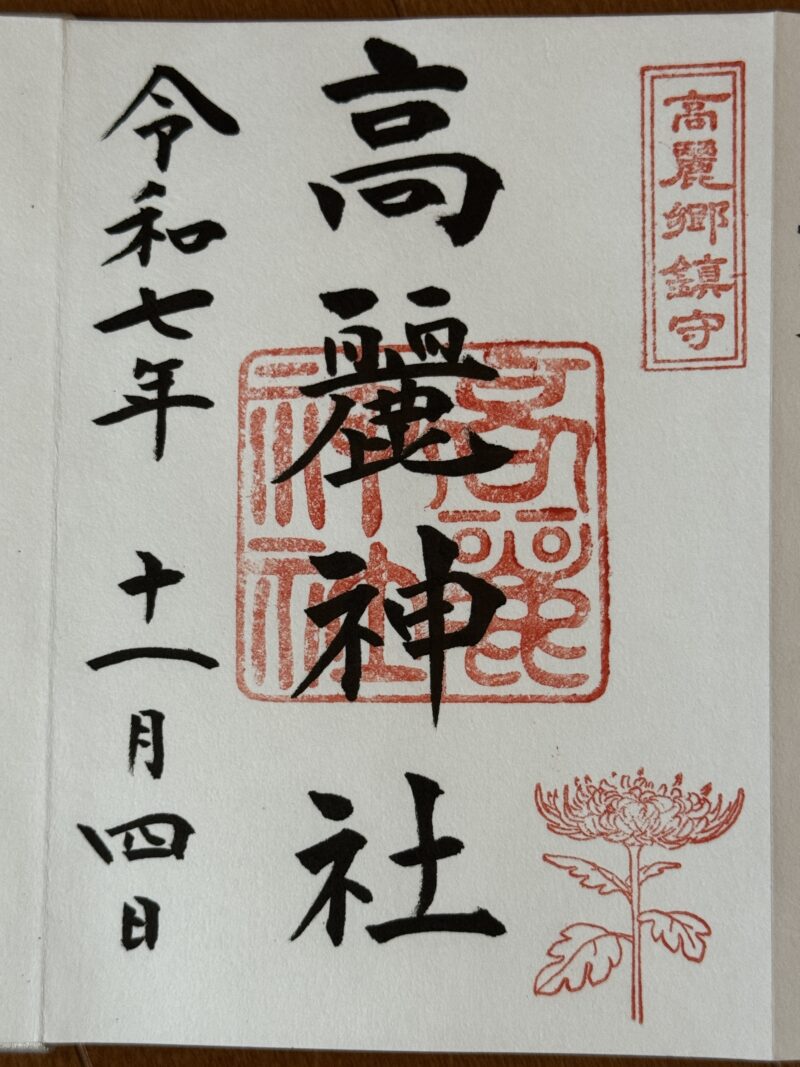 高麗郷鎮守
高麗神社
高麗神社
令和七年 十一月四日